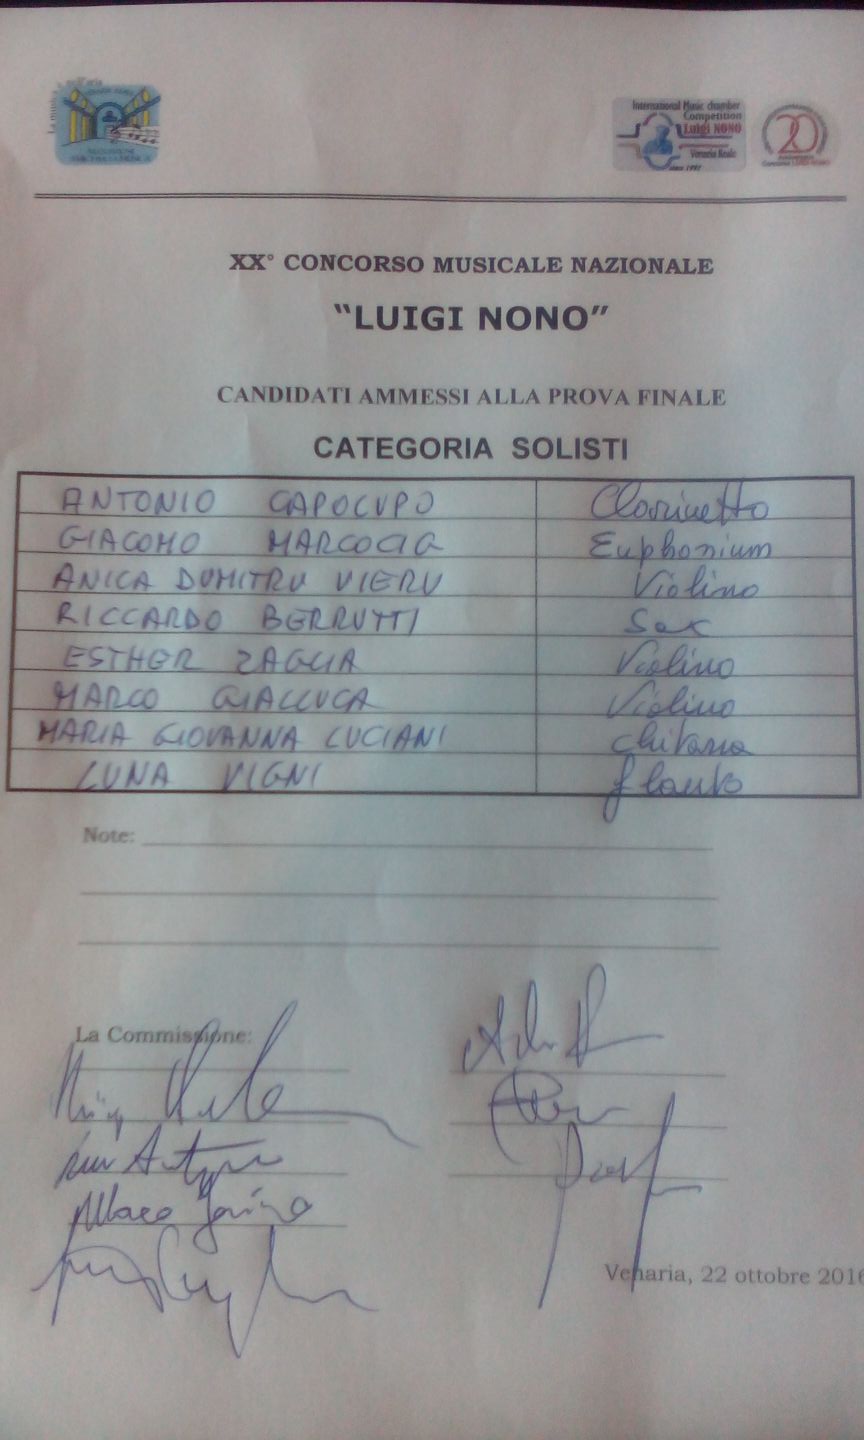 International Music chamber
Competition
Luigi NONO
Venaria Reale
since 1997
20
XX° CONCORSO MUSICALE NAZIONALE
"LUIGI NONO"
CANDIDATI AMMESSI ALLA PROVA FINALE
CATEGORIA SOLISTI
ANTONIO CAPOCUPO Clarinetto
GIACOMO Euphonium
ANICA DUMITRU VIERU Violino
RICCARDO BERRUTTI Sax
ESTHER ZAGLIA Violino
MARCO GIALLUCA Violino
MARIA GIOVANNA LUCIANI chitarra
LUNA VIGNI flauto
Note:
La Commissione:
Venaria, 22 ottobre 2016